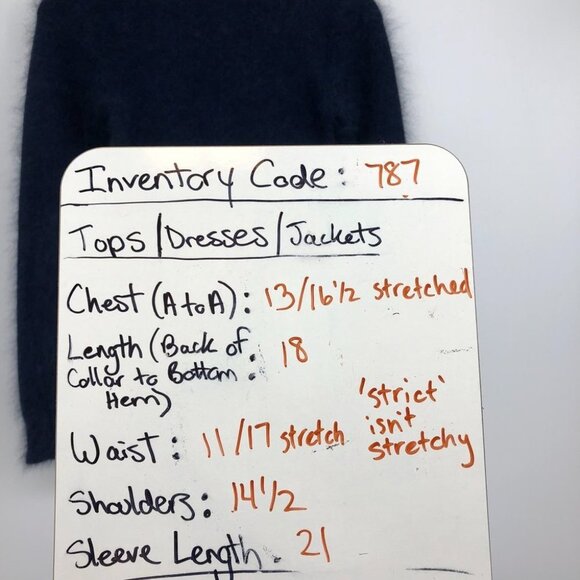 Inventory Code: 787
Tops/Dresses/Jackets
Chest (A to A): 13/16 1/2 stretched
Length (Back of Collar to Bottom Hem): 18
'strict' isn't stretchy
Waist: 11/17 stretch
Shoulders: 14 1/2
Sleeve Length: 21